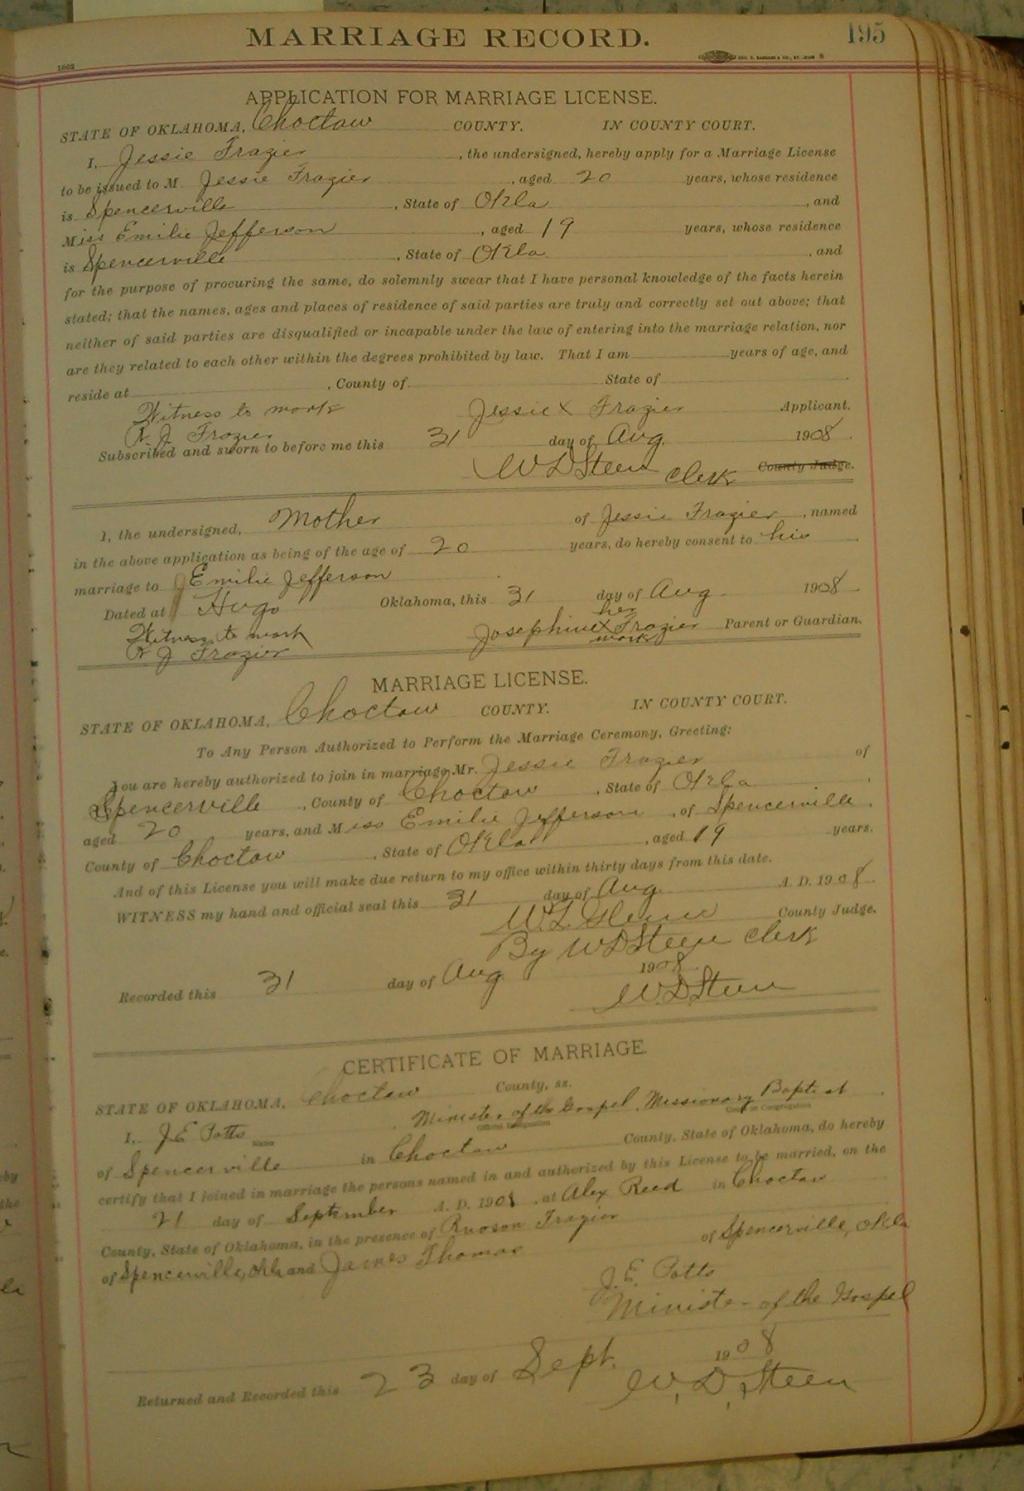 MARRIAGE RECORD. 195
1802
APPLICATION FOR MARRIAGE LICENSE.
STATE OF OKLAHOMA, Choctaw COUNTY. IN COUNTY COURT.
I, Jessie Frazier, the undersigned, hereby apply for a Marriage License
to be issued to M Jessie Frazier, aged 20 years, whose residence
is Spencerville, State of Okla, and
Miss Emilie Jefferson, aged 19 years, whose residence
is Spencerville, State of Okla, and
for the purpose of procuring the same, do solemnly swear that I have personal knowledge of the facts herein
stated; that the names, ages and places of residence of said parties are truly and correctly set out above; that
neither of said parties are disqualified or incapable under the law of entering into the marriage relation, nor
are they related to each other within the degrees prohibited by law. That I am years of age, and
reside at , County of State of
Witness to mark Jessie x Frazier Applicant.
N. J. Frazier
Subscribed and sworn to before me this 31 day of Aug. 1908.
W D Steen Clerk County Judge.
I, the undersigned, Mother of Jessie Frazier, named
in the above application as being of the age of 20 years, do hereby consent to his
marriage to Emilie Jefferson
Dated at Hugo Oklahoma, this 31 day of Aug 1908
her
Witness to mark Josephine x Frazier Parent or Guardian.
N J Frazier mark
MARRIAGE LICENSE.
STATE OF OKLAHOMA, Choctaw COUNTY. IN COUNTY COURT.
To Any Person Authorized to Perform the Marriage Ceremony, Greeting:
You are hereby authorized to join in marriage Mr. Jessie Frazier of
Spencerville, County of Choctaw, State of Okla,
aged 20 years, and Miss Emilie Jefferson, of Spencerville,
County of Choctaw, State of Okla, aged 19 years.
And of this License you will make due return to my office within thirty days from this date.
WITNESS my hand and official seal this 31 day of Aug A. D. 1908.
W. T. Glenn County Judge.
By W D Steen Clerk
Recorded this 31 day of Aug 1908
W. D. Steen
CERTIFICATE OF MARRIAGE.
STATE OF OKLAHOMA, Choctaw County, ss.
I, J. E. Potts, Minister of the Gospel, Missionary Baptist
Name Official Designation Church or Congregation
of Spencerville in Choctaw County, State of Oklahoma, do hereby
certify that I joined in marriage the persons named in and authorized by this License to be married, on the
21 day of September A. D. 1908, at Alex Reed in Choctaw
County, State of Oklahoma, in the presence of Frazier of Spencerville, Okla
of Spencerville, Okla and James Thomas
J. E. Potts
Minister of the Gospel
Returned and Recorded this 23 day of Sept. 1908
W. D. Steen